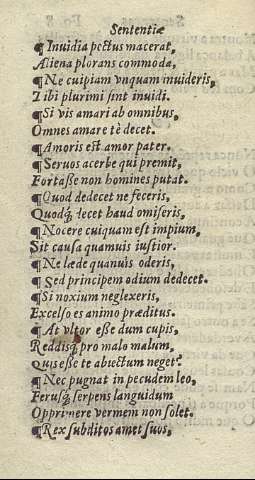 Sententiæ
¶ Inuidia pectus macerat,
Aliena plorans commoda,
¶ Ne cuipiam vnquam inuideris,
Tibi plurimi sint inuidi.
¶ Si vis amari ab omnibus,
Omnes amare tè decet.
¶ Amoris est amor pater.
¶ Seruos acerbe qui premit,
Fortaße non homines putat.
¶ Quod dedecet ne feceris,
Quodq́; decet haud omiseris,
¶ Nocere cuiquam est impium,
Sit causa quamuis iustior.
¶ Ne læde quanuis oderis,
¶ Sed principem odium dedecet.
¶ Si noxium neglexeris,
Excelso es animo præditus.
¶ At vltor eße dum cupis,
Reddisq́; pro malo malum,
Quis eße te abiectum neget?
¶ Nec pugnat in pecudem leo,
Ferusq́; serpens languidum
Opprimere vermem non solet.
¶ Rex subditos amet suos,